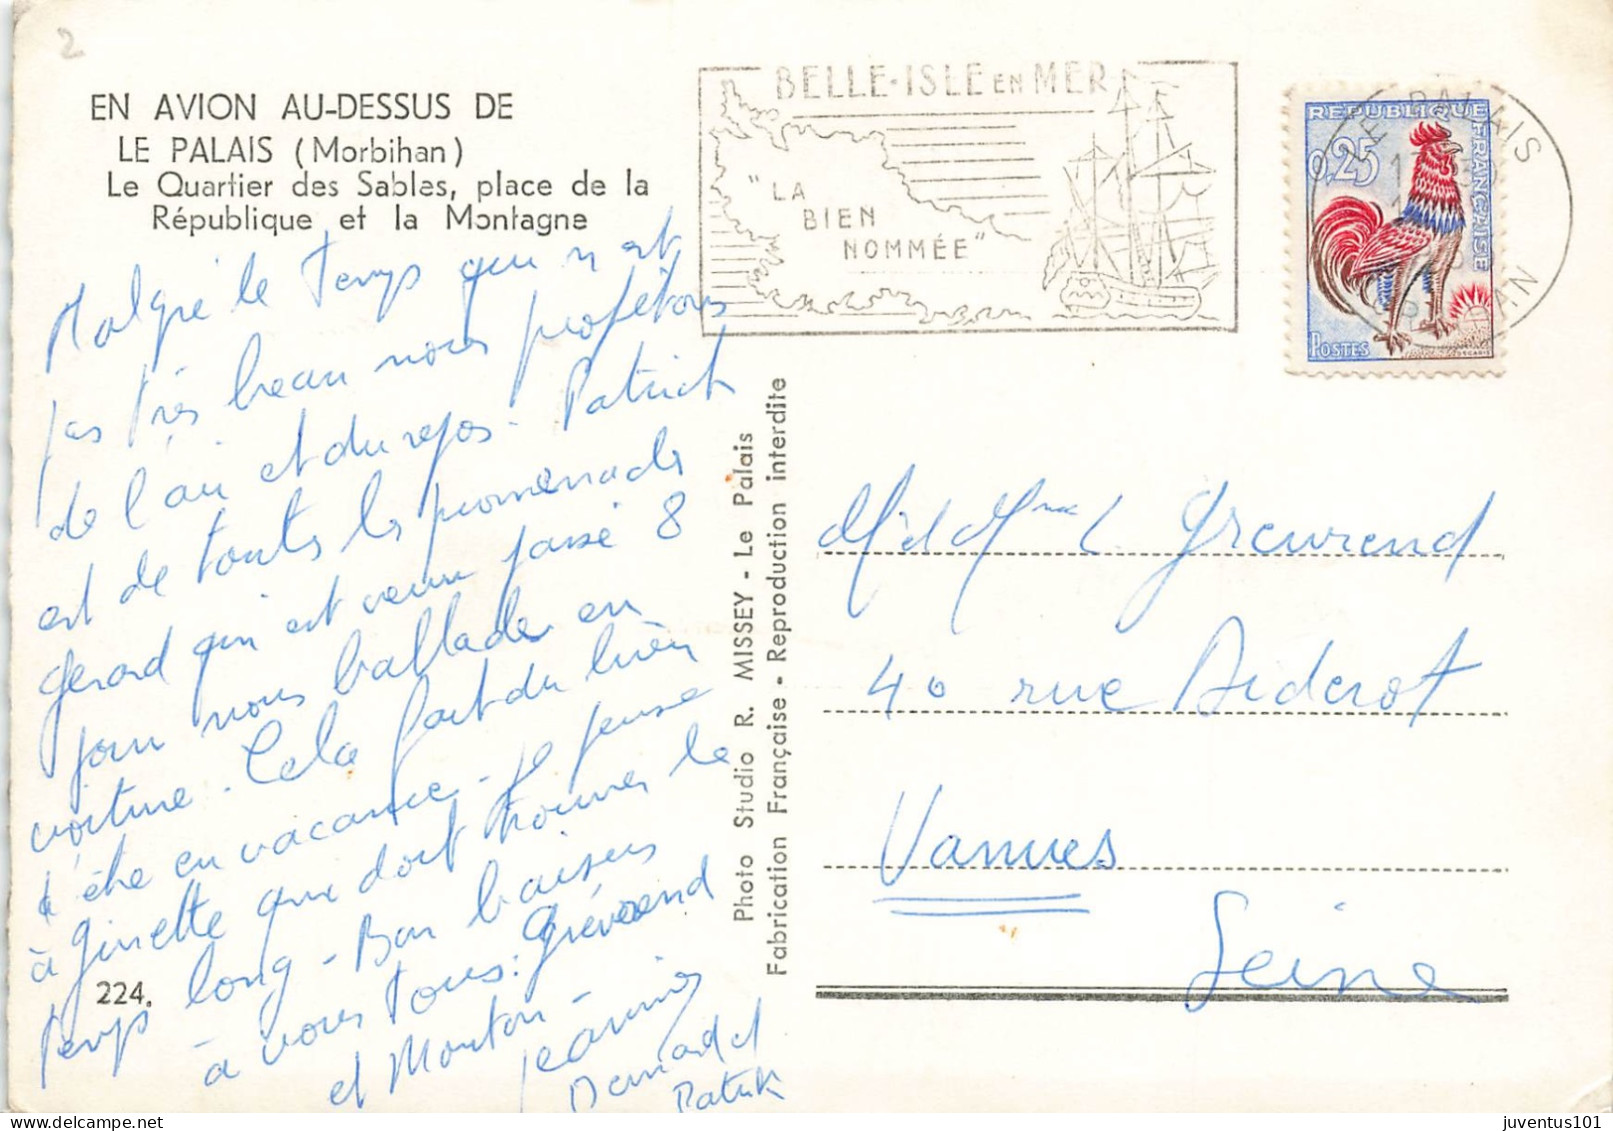 2
EN AVION AU-DESSUS DE
LE PALAIS (Morbihan)
Le Quartier des Sables, place de la
République et la Montagne
Malgré le Temps qui n'est
pas très beau nous profitons
de l'air et du repos - Patrick
est de toutes les promenades
Gerard qui est venu passé 8
jour nous ballade en
voiture - Cela fait du bien
d'être en vacance - je pense
à Ginette que doit trouver le
temps long - Bon baisers
à vous tous: Grévrend
et Mouton -
Jeannine
Bernard et
Patrick
224.
Photo Studio R. MISSEY - Le Palais
Fabrication Française - Reproduction interdite
BELLE-ISLE EN MER
"LA
BIEN
NOMMÉE"
REPUBLIQUE FRANÇAISE
0,25
POSTES
DECARIS
LE PALAIS
MORBIHAN
Mr et Mme L. Grevrend
40 rue Diderot
Vanves
Seine
juventus101